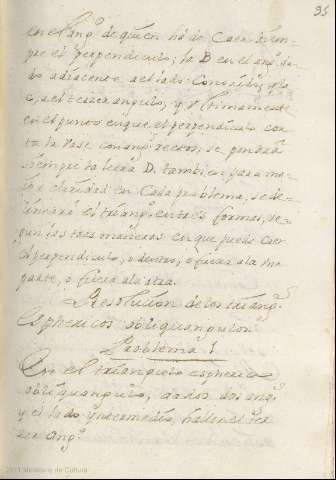 95
en el ang.º de quien ha de Caer siem-
pre el perpendiculo; la B en el ang.º da-
do adiacente al lado Conosido; y la
C, al tercer angulo; y ultimamente
en el punto en que el perpendiculo cor-
ta la vase con ang.s rectos, se pondrá
siempre la letra D. tambien para me-
jor claridad en Cada problema, se de-
lineará el triang.º en tres formas, se-
gun las tres maneras en que puede Caer
el perpendiculo, o dentro, o fuera a la una
parte, o fuera a la otra.
Resolucion de los triang.s
Esphericos obliquangulos
Problema 1
En el triangulo espherico
obliquangulo, dados dos ang.s
y el lado que media, hallar el ter
cer Ang.º
2011 Ministerio de Cultura